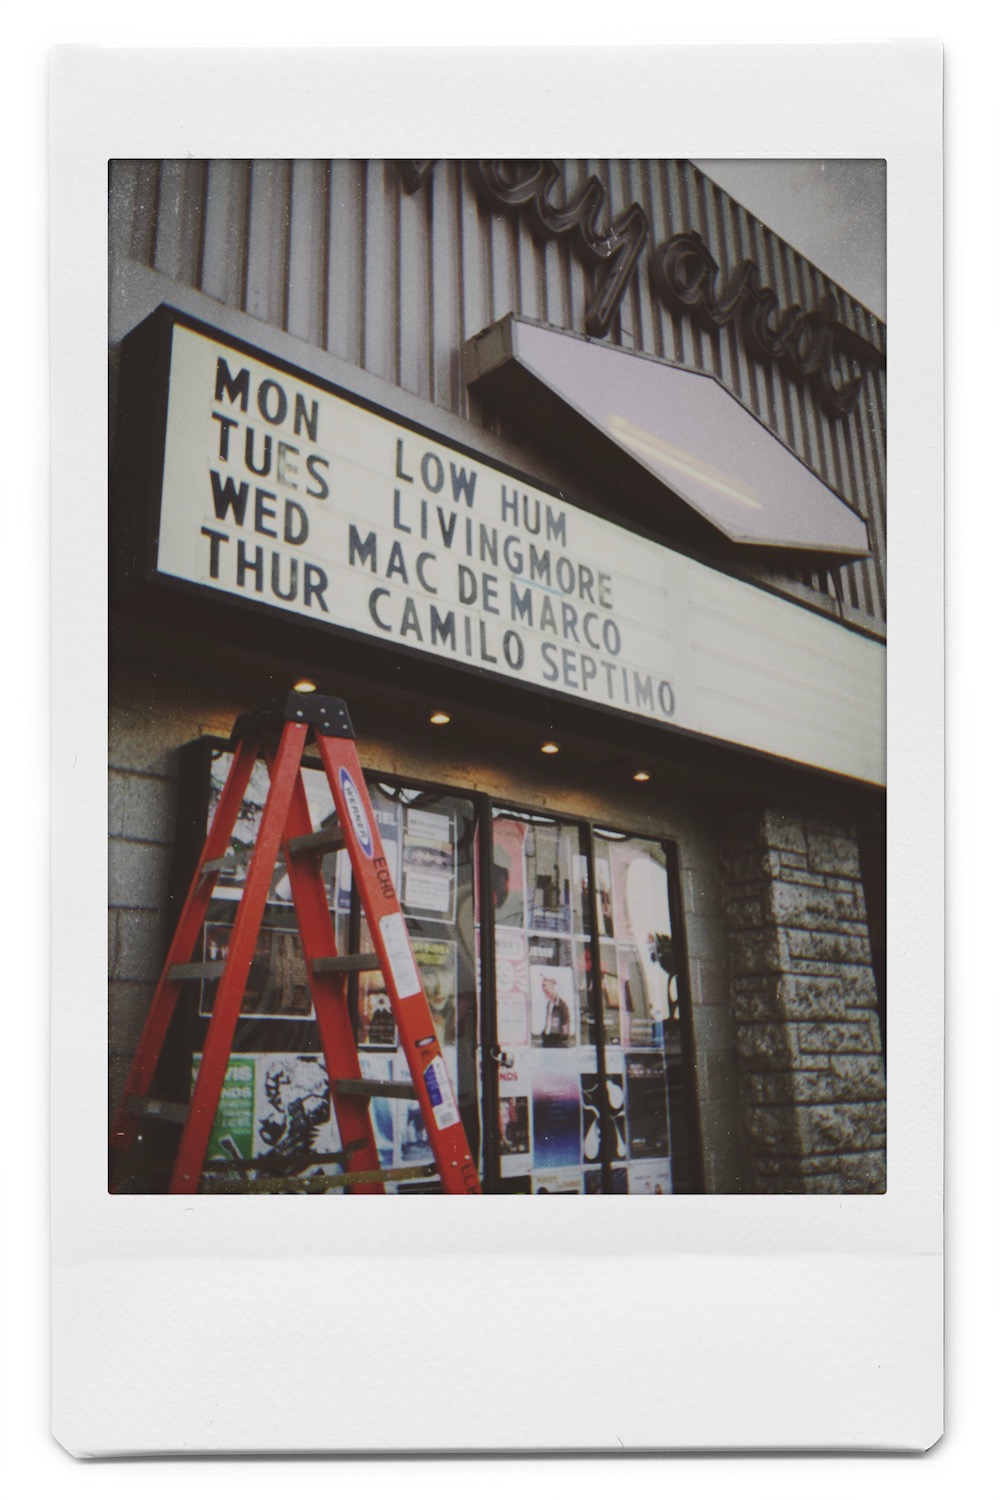 MON LOW HUM
TUES LIVINGMORE
WED MAC DEMARCO
THUR CAMILO SEPTIMO
WERNER
ECHO